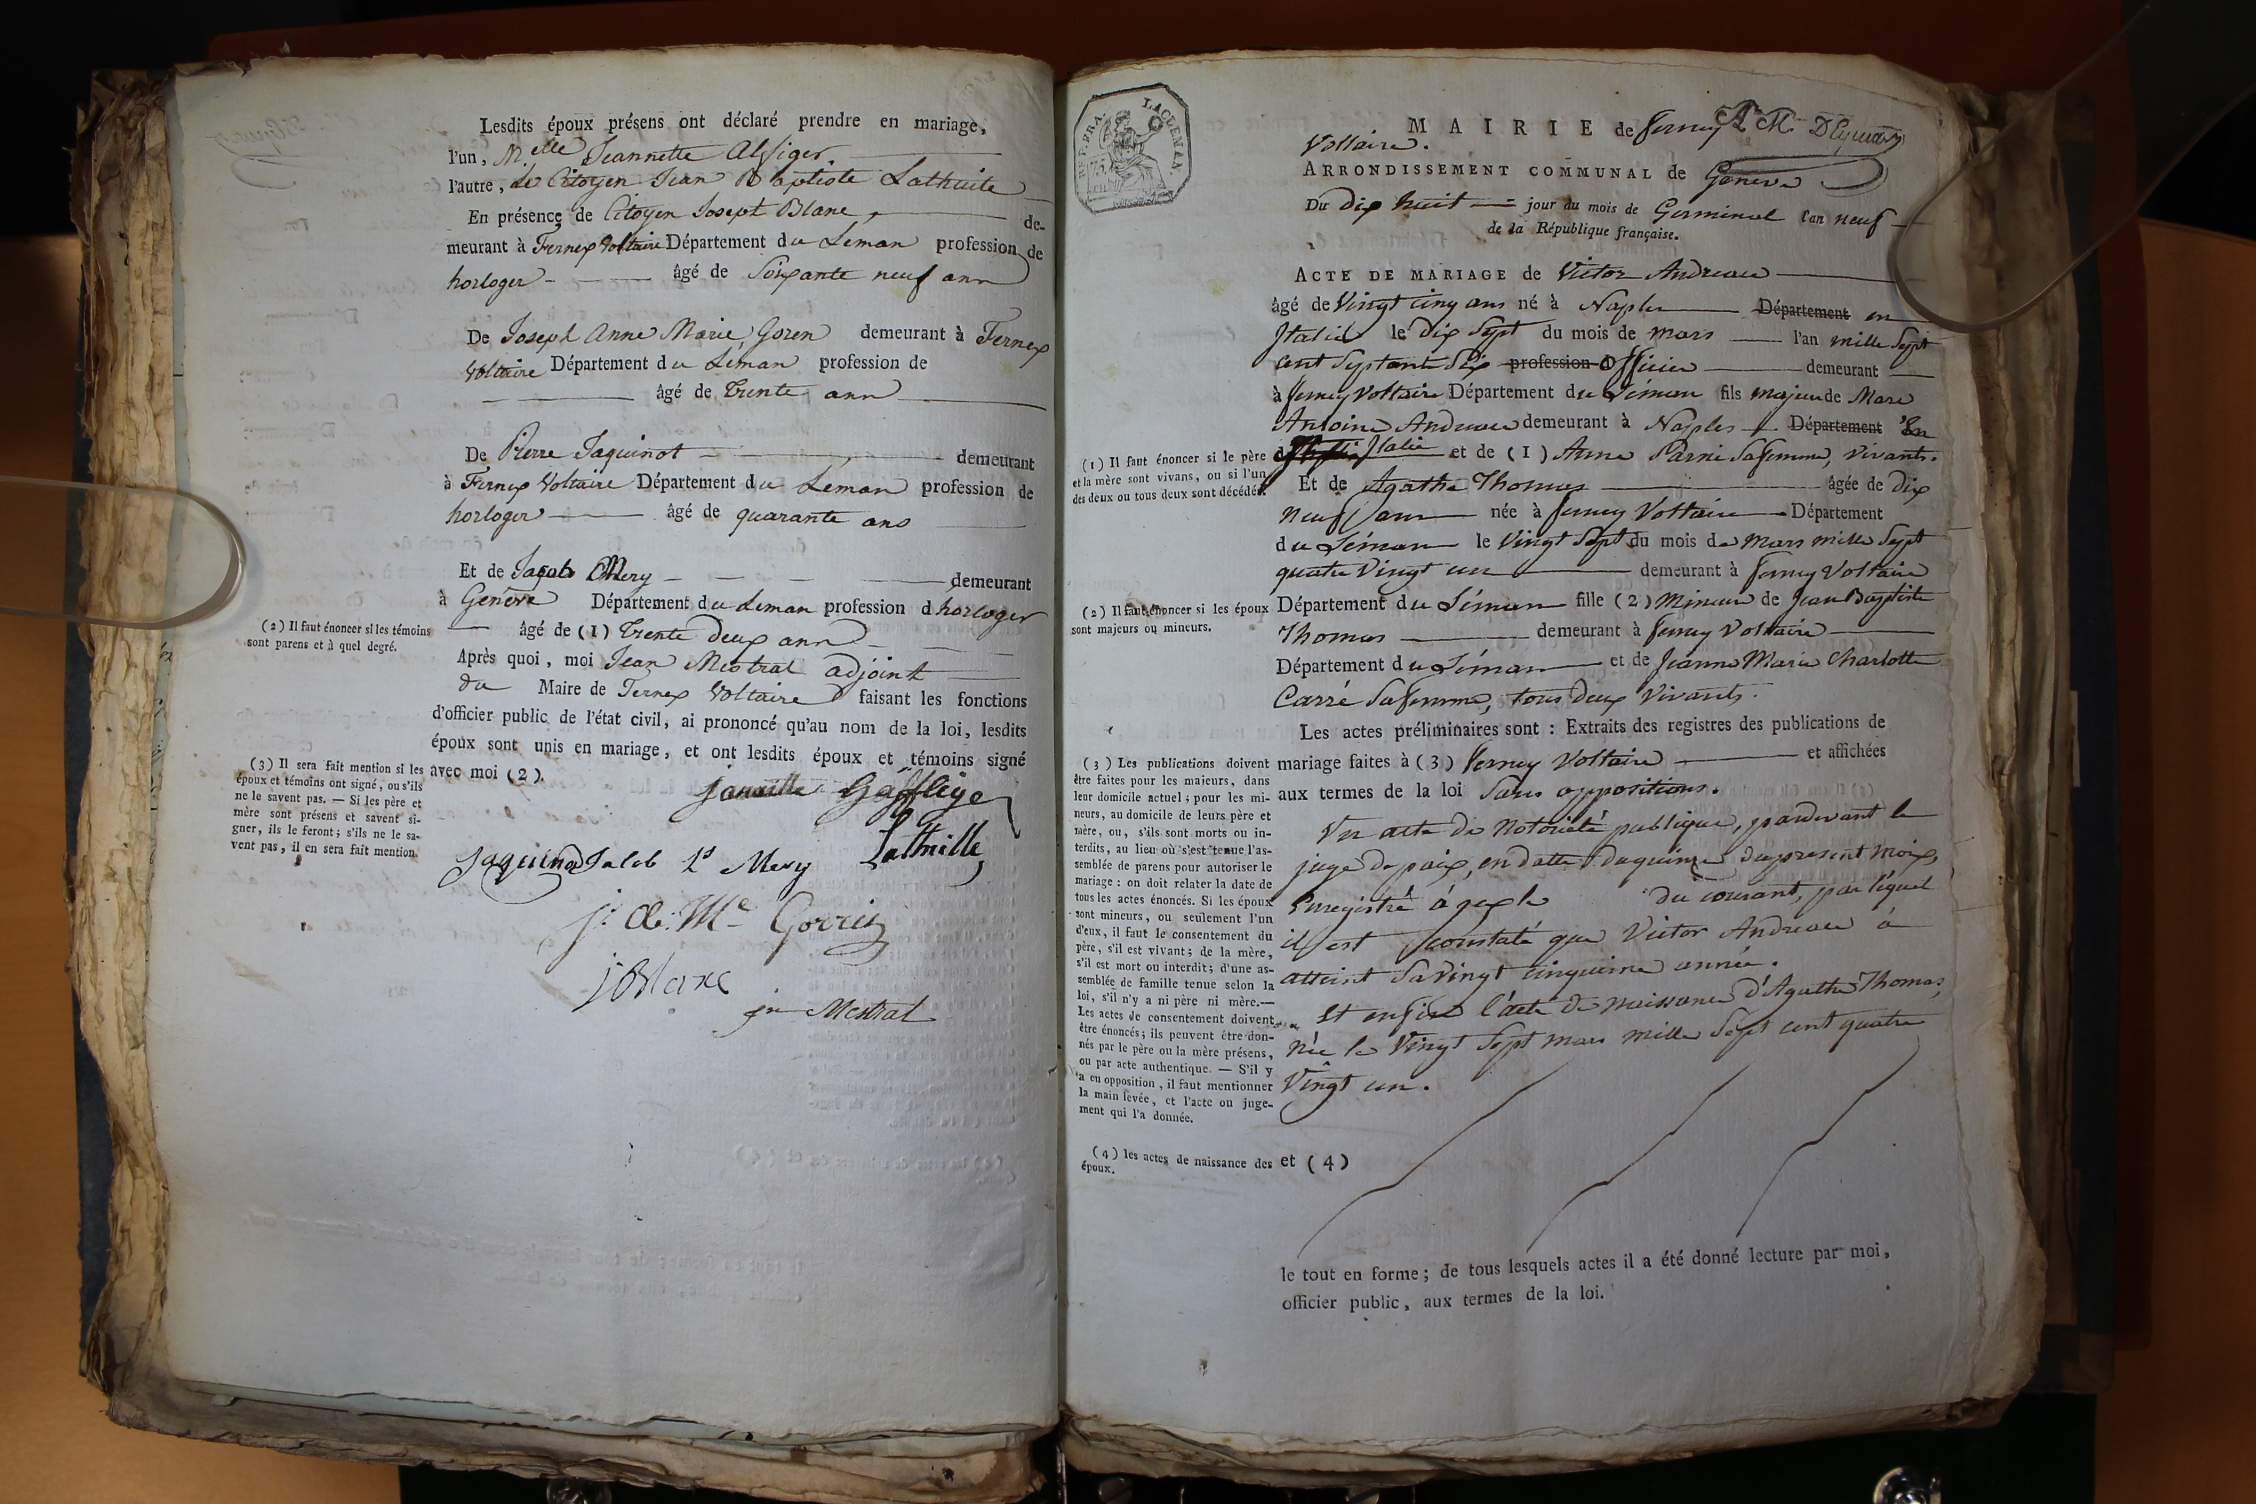 Lesdits époux présens ont déclaré prendre en mariage,
l'un, Melle Jeannette
l'autre, le Citoyen Jean Baptiste Lathuile
En présence de Citoyen Joseph Blanc, de-
meurant à Fernex Voltaire Département du Léman profession de
horloger âgé de Soixante neuf ans
De Joseph Anne Marie Goren demeurant à Fernex
Voltaire Département du Léman profession de
âgé de trente ans
De Pierre Jaquinot demeurant
à Fernex Voltaire Département du Léman profession de
horloger âgé de quarante ans
Et de Jacob Mery demeurant
à Genève Département du Léman profession d horloger
âgé de (1) trente deux ans
Après quoi, moi Jean Mestral adjoint
du Maire de Fernex Voltaire faisant les fonctions
d'officier public de l'état civil, ai prononcé qu'au nom de la loi, lesdits
époux sont unis en mariage, et ont lesdits époux et témoins signé
avec moi (2).
(2) Il faut énoncer si les témoins
sont parens et à quel degré.
(3) Il sera fait mention si les
époux et témoins ont signé, ou s'ils
ne le savent pas. — Si les père et
mère sont présens et savent si-
gner, ils le feront; s'ils ne le sa-
vent pas, il en sera fait mention.
Lathuille
Jaquino Jacob Ls Mery
j. A. Me Gorrin
j Blanc
jn Mestral
REP. FRA.
75
MAIRIE de Ferney
Voltaire.
ARRONDISSEMENT COMMUNAL de Genève
Du dix huit jour du mois de Germinal l'an neuf
de la République française.
ACTE DE MARIAGE de Victor Andreau
âgé de Vingt cinq ans né à Naples Département en
Italie le dix Sept du mois de mars l'an mille Sept
cent Septante Six profession d Officier demeurant
à Ferney Voltaire Département du Léman fils majeur de Marc
Antoine Andreau demeurant à Naples Département En
Italie et de (1) Anne Parni Sa femme, Vivants.
Et de Agathe Thomas âgée de Dix
neuf ans née à Ferney Voltaire Département
du Léman le Vingt Sept du mois de Mars mille Sept
quatre Vingt un demeurant à Ferney Voltaire
Département du Léman fille (2) Mineure de Jean Baptiste
Thomas demeurant à Ferney Voltaire
Département du Léman et de Jeanne Marie Charlotte
Carré Sa femme, tous deux Vivants.
Les actes préliminaires sont : Extraits des registres des publications de
mariage faites à (3) Ferney Voltaire et affichées
aux termes de la loi Sans oppositions.
Vu acte de Notoriété publique, pardevant le
juge de paix, en datte du quinze du present mois,
Enregistré à gex le du courant, par lequel
il est constaté que Victor Andreau a
atteint Sa Vingt cinquieme année.
Et enfin l'acte de naissance d'Agathe Thomas,
née le Vingt Sept mars mille Sept cent quatre
Vingt un.
et (4)
le tout en forme; de tous lesquels actes il a été donné lecture par moi,
officier public, aux termes de la loi.
(1) Il faut énoncer si le père
et la mère sont vivans, ou si l'un
des deux ou tous deux sont décédés.
(2) Il faut énoncer si les époux
sont majeurs ou mineurs.
(3) Les publications doivent
être faites pour les majeurs, dans
leur domicile actuel; pour les mi-
neurs, au domicile de leurs père et
mère, ou, s'ils sont morts ou in-
terdits, au lieu où s'est tenue l'as-
semblée de parens pour autoriser le
mariage : on doit relater la date de
tous les actes énoncés. Si les époux
sont mineurs, ou seulement l'un
d'eux, il faut le consentement du
père, s'il est vivant; de la mère,
s'il est mort ou interdit; d'une as-
semblée de famille tenue selon la
loi, s'il n'y a ni père ni mère.—
Les actes de consentement doivent
être énoncés; ils peuvent être don-
nés par le père ou la mère présens,
ou par acte authentique. — S'il y
a eu opposition, il faut mentionner
la main levée, et l'acte ou juge-
ment qui l'a donnée.
(4) les actes de naissance des
époux.